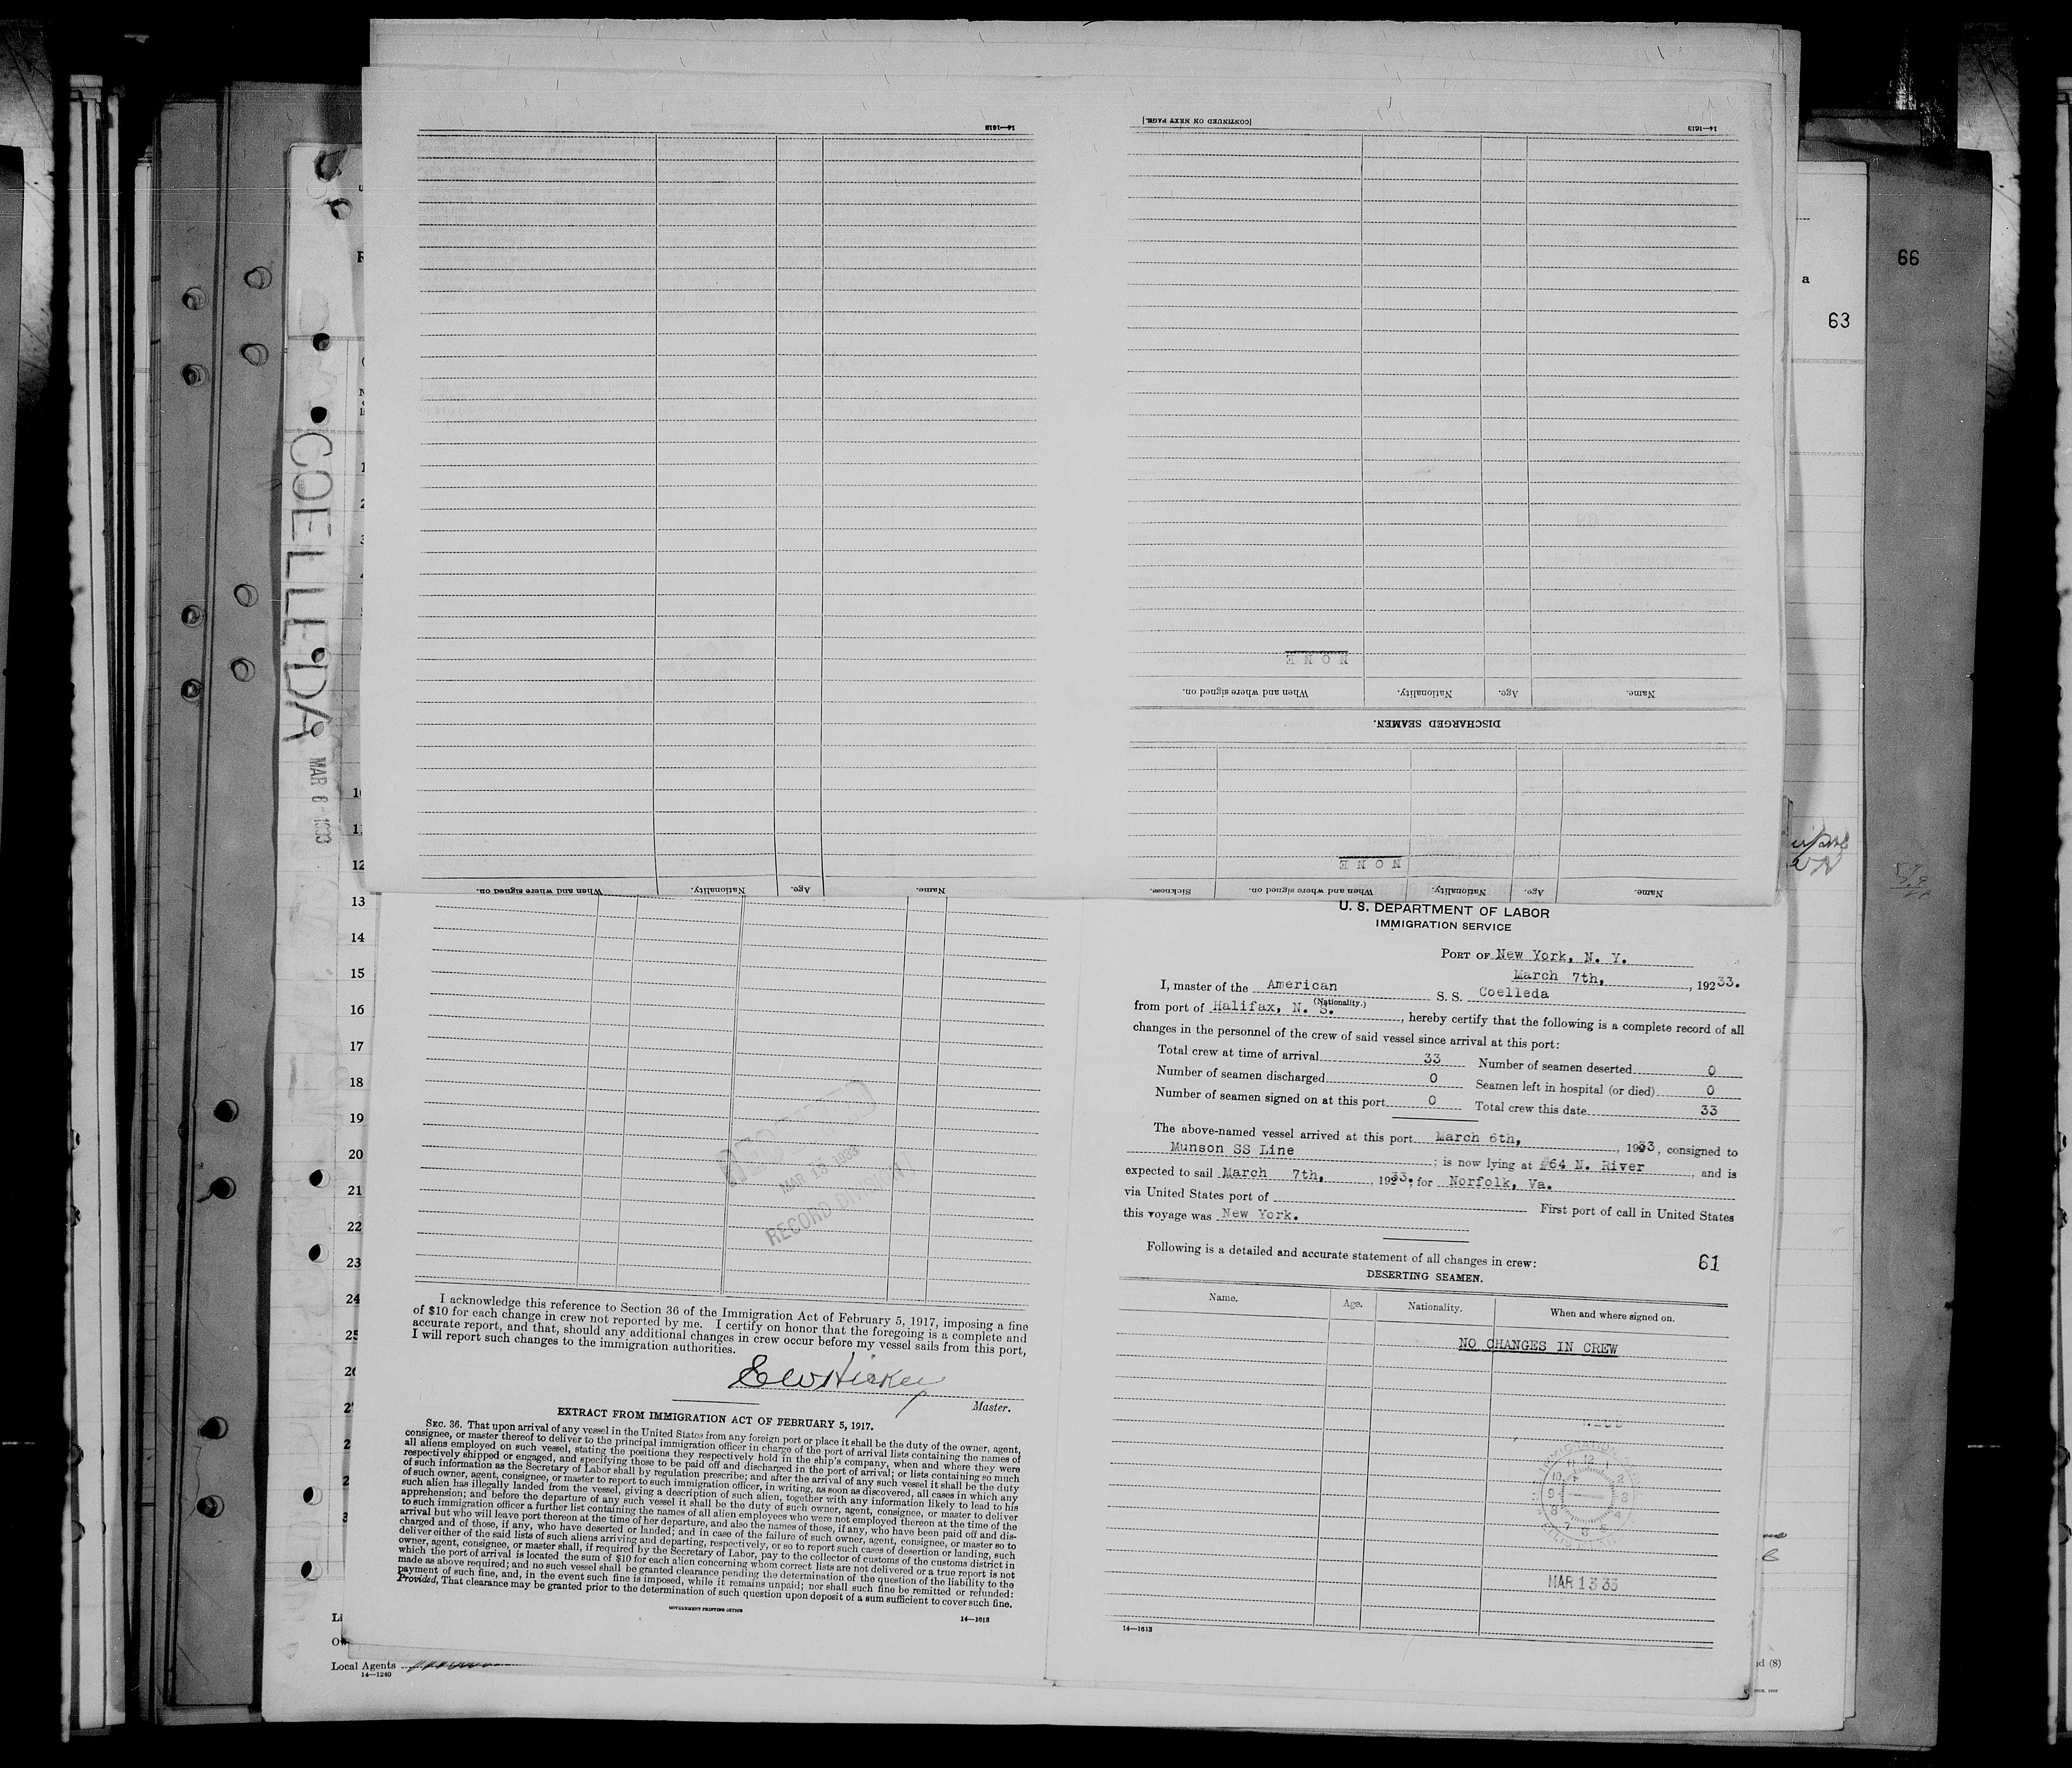 14—1613
[CONTINUED ON NEXT PAGE.]
14—1613
NONE
When and where signed on.
Nationality.
Age.
Name.
DISCHARGED SEAMEN.
NONE
When and where signed on.
Nationality.
Age.
Name.
Sickness.
When and where signed on.
Nationality.
Age.
Name.
66
a
63
COELLEDA
MAR 6-1933
10
11
12
13
14
15
16
17
18
19
20
21
22
23
24
25
MAR 13 1933
RECORD DIVISION
I acknowledge this reference to Section 36 of the Immigration Act of February 5, 1917, imposing a fine
of $10 for each change in crew not reported by me. I certify on honor that the foregoing is a complete and
accurate report, and that, should any additional changes in crew occur before my vessel sails from this port,
I will report such changes to the immigration authorities.
E W Hickey
Master.
EXTRACT FROM IMMIGRATION ACT OF FEBRUARY 5, 1917.
SEC. 36. That upon arrival of any vessel in the United States from any foreign port or place it shall be the duty of the owner, agent,
consignee, or master thereof to deliver to the principal immigration officer in charge of the port of arrival lists containing the names of
all aliens employed on such vessel, stating the positions they respectively hold in the ship's company, when and where they were
respectively shipped or engaged, and specifying those to be paid off and discharged in the port of arrival; or lists containing so much
of such information as the Secretary of Labor shall by regulation prescribe; and after the arrival of any such vessel it shall be the duty
of such owner, agent, consignee, or master to report to such immigration officer, in writing, as soon as discovered, all cases in which any
such alien has illegally landed from the vessel, giving a description of such alien, together with any information likely to lead to his
apprehension; and before the departure of any such vessel it shall be the duty of such owner, agent, consignee, or master to deliver
to such immigration officer a further list containing the names of all alien employees who were not employed thereon at the time of the
arrival but who will leave port thereon at the time of her departure, and also the names of those, if any, who have been paid off and dis-
charged and of those, if any, who have deserted or landed; and in case of the failure of such owner, agent, consignee, or master so to
deliver either of the said lists of such aliens arriving and departing, respectively, or so to report such cases of desertion or landing, such
owner, agent, consignee, or master shall, if required by the Secretary of Labor, pay to the collector of customs of the customs district in
which the port of arrival is located the sum of $10 for each alien concerning whom correct lists are not delivered or a true report is not
made as above required; and no such vessel shall be granted clearance pending the determination of the question of the liability to the
payment of such fine, and, in the event such fine is imposed, while it remains unpaid; nor shall such fine be remitted or refunded:
Provided, That clearance may be granted prior to the determination of such question upon deposit of a sum sufficient to cover such fine.
GOVERNMENT PRINTING OFFICE
14—1613
Local Agents
14—1240
U. S. DEPARTMENT OF LABOR
IMMIGRATION SERVICE
PORT OF New York, N. Y.
March 7th, , 1923 3.
I, master of the American S. S. Coelleda
(Nationality.)
from port of Halifax, N. S. , hereby certify that the following is a complete record of all
changes in the personnel of the crew of said vessel since arrival at this port:
Total crew at time of arrival 33 Number of seamen deserted 0
Number of seamen discharged 0 Seamen left in hospital (or died) 0
Number of seamen signed on at this port 0 Total crew this date 33
The above-named vessel arrived at this port March 6th, , 1933, consigned to
Munson SS Line ; is now lying at #64 N. River , and is
expected to sail March 7th, , 1933. for Norfolk, Va.
via United States port of First port of call in United States
this voyage was New York.
Following is a detailed and accurate statement of all changes in crew:
61
DESERTING SEAMEN.
Name. Age. Nationality. When and where signed on.
NO CHANGES IN CREW
MAR 13 33
14—1613
(8)